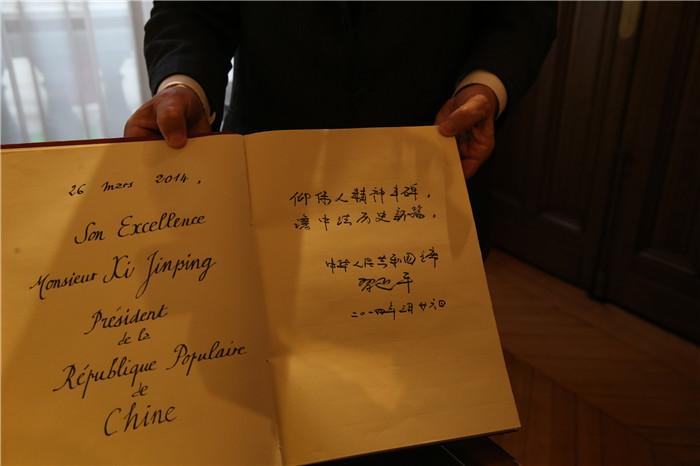 26 mars 2014.
Son Excellence
Monsieur Xi Jinping
Président
de la
République Populaire
de
Chine
仰伟人精神丰碑，
谱中法历史新篇。
中华人民共和国主席
习近平
二〇一四年三月廿六日